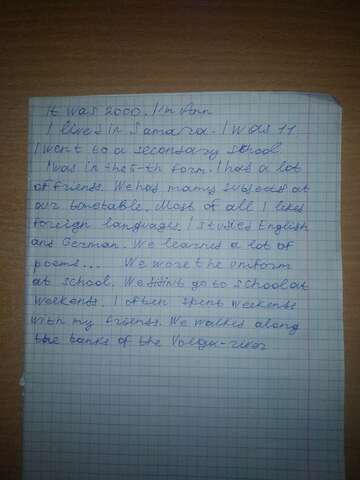 It was 2000. I'm Ann
I lives in Samara. I was 11
I went to a secondary school
I was in the 5-th form. I has a lot
of friends. We has many subjects at
our timetable. Most of all I likes
foreign languages. I studies English
and German. We learned a lot of
poems... We wore the uniform
at school. We didnt go to school at
weekends. I often spent weekends
with my friends. We walked along
the banks of the Volga-river